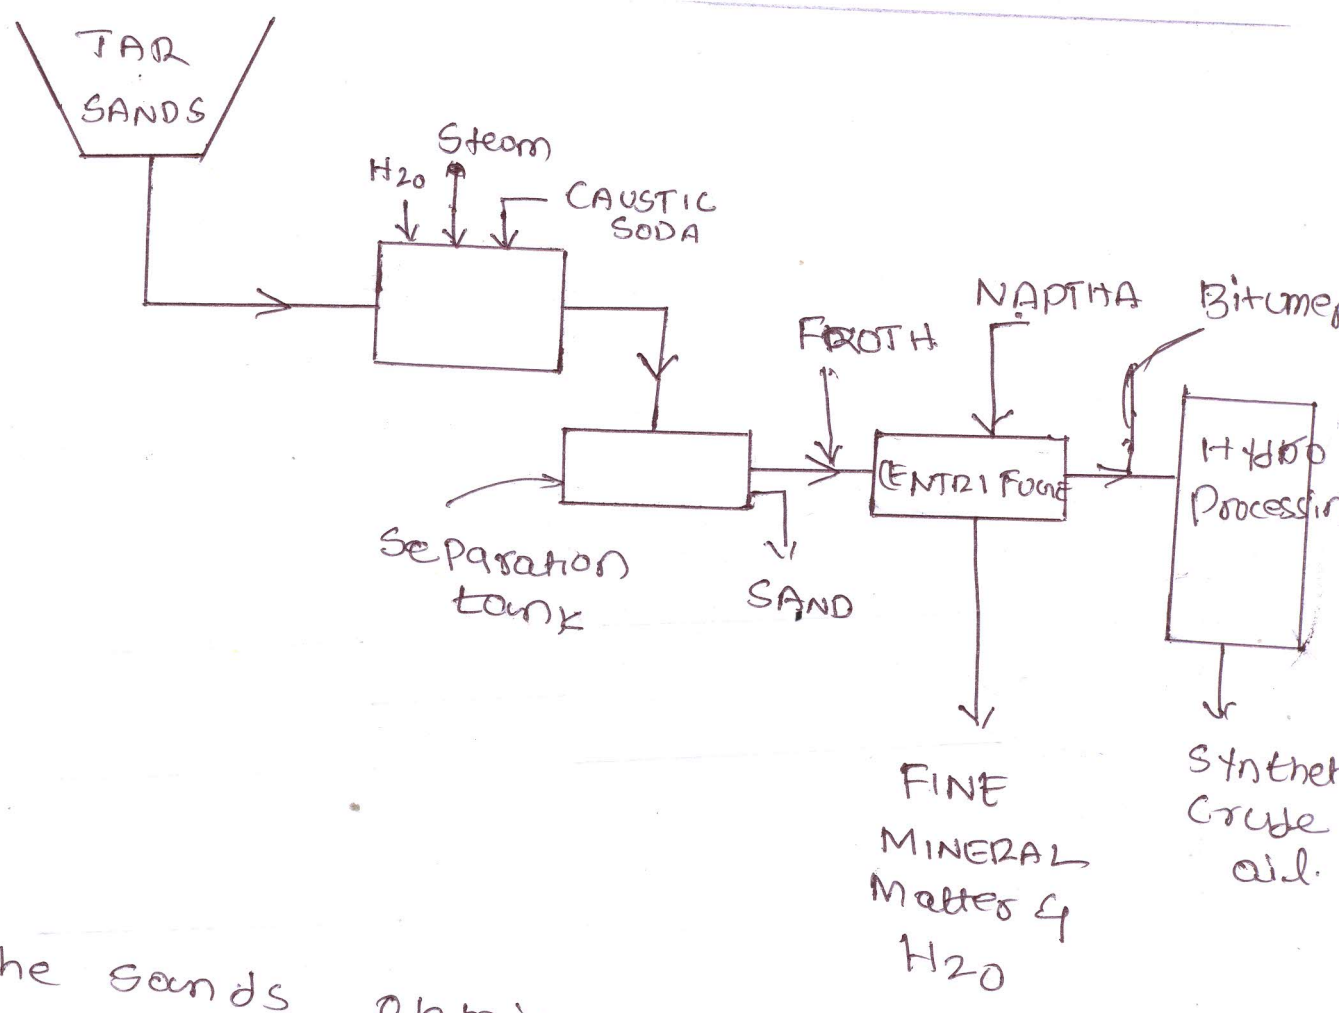 TAR
SANDS
Steam
H2O
CAUSTIC
SODA
NAPTHA
Bitumen
FROTH
Hydro
Processin
CENTRIFUGE
Separation
tank
SAND
FINE
MINERAL
Matter &
H2O
Synthet
Crude
oil.
he sands